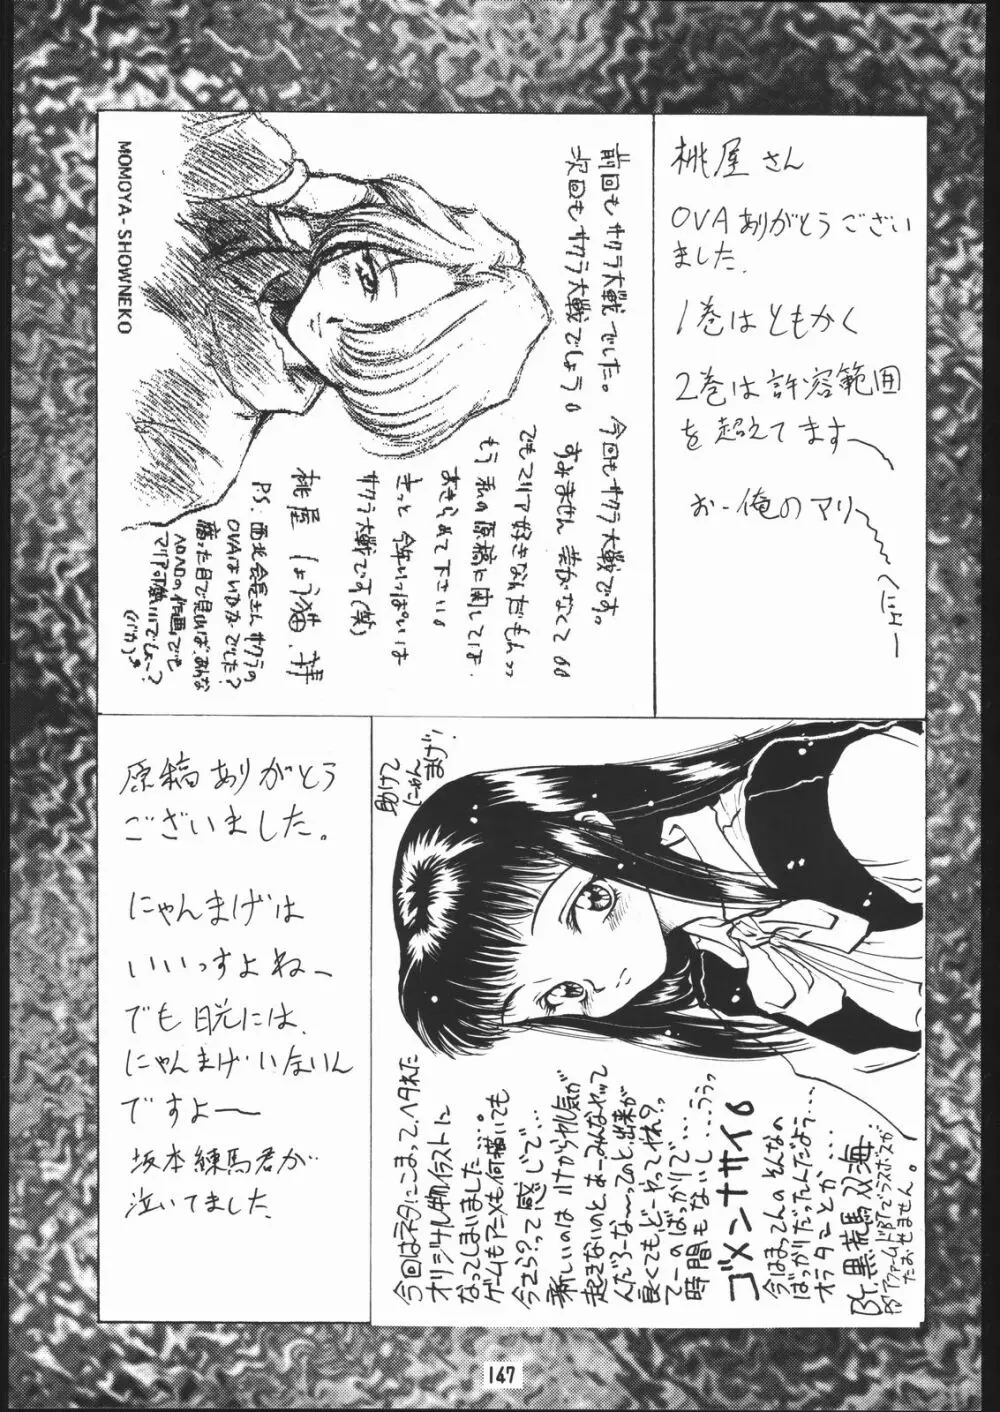 桃屋さん
OVAありがとうござい
ました.
1巻はともかく
2巻は許容範囲
を超えてます〜
お-俺のマリ〜
MOMOYA-SHOWNEKO
前回もサクラ大戦でした。今回もサクラ大戦です。
次回もサクラ大戦でしょう。すみません芸がなくて。
でもマリア好きなんだもん
もう私の原稿に関しては
あきらめて下さい。
きっと今年いっぱいは
サクラ大戦です(笑)
桃屋しょう猫.拝
P.S.西北会長さんサクラの
OVAはいかがでした?
腐った目で見れば、あんな
の作画でも
マリア可愛いいでしょ〜?
(バカ)
原稿ありがとう
ございました。
にゃんまげは
いいっすよねー
でも日光には、
にゃんまげいないん
ですよ〜
坂本練馬君が
泣いてました
助けて
にゃん
まげ!
今回はネタにこまって、ハタれた
オリジナル物イラストに
なってしまいました…。
ゲームもアニメも何描いても
今さら?って感じで…
新しいのはハナからヤル気が
起きないのとあーみんなやって
んだろーな〜ってのと出来が
良くても、どーやってやれ?っ
てーのばっかりで…
時間もないし…ううっ
ゴメンナサイ。
今はまってんのそんなの
ばっかりだったんだよう…
オラタンとか…
By.黒龍馬双海.
アファームドBTでラスボスが
たおせません。
147